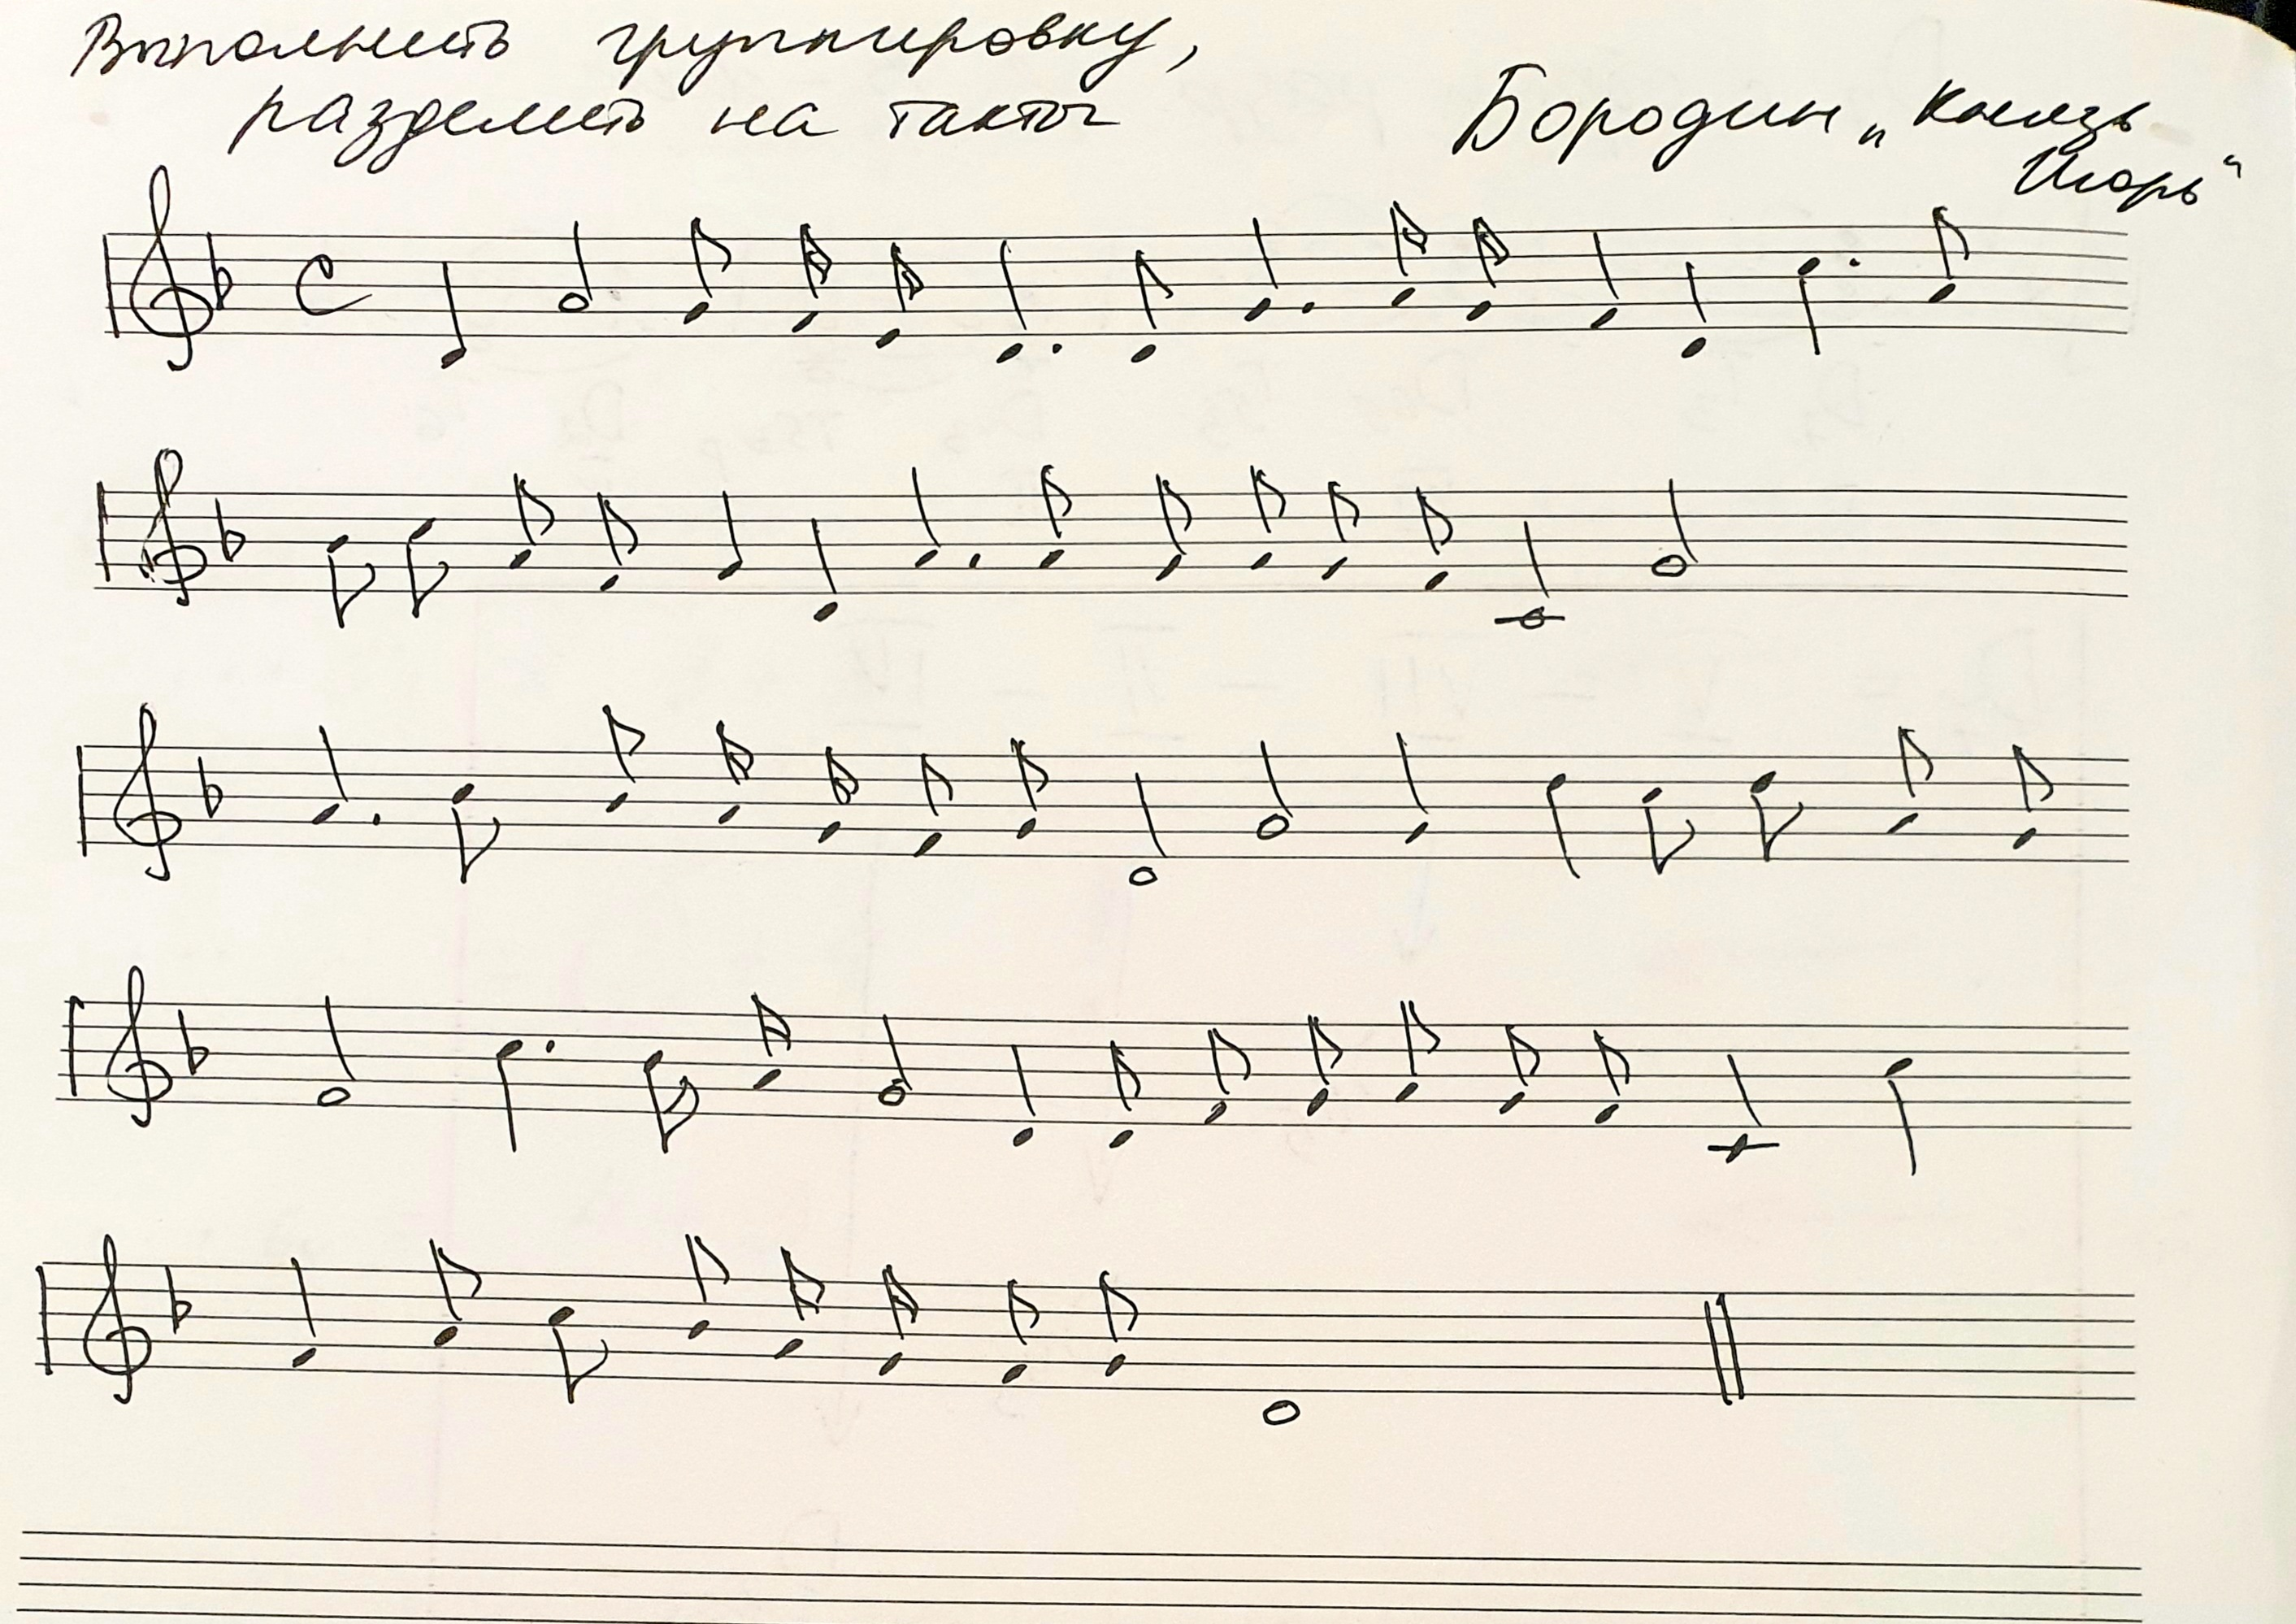 Выполнить группировку,
разделить на такты
Бородин „Князь
Игорь“